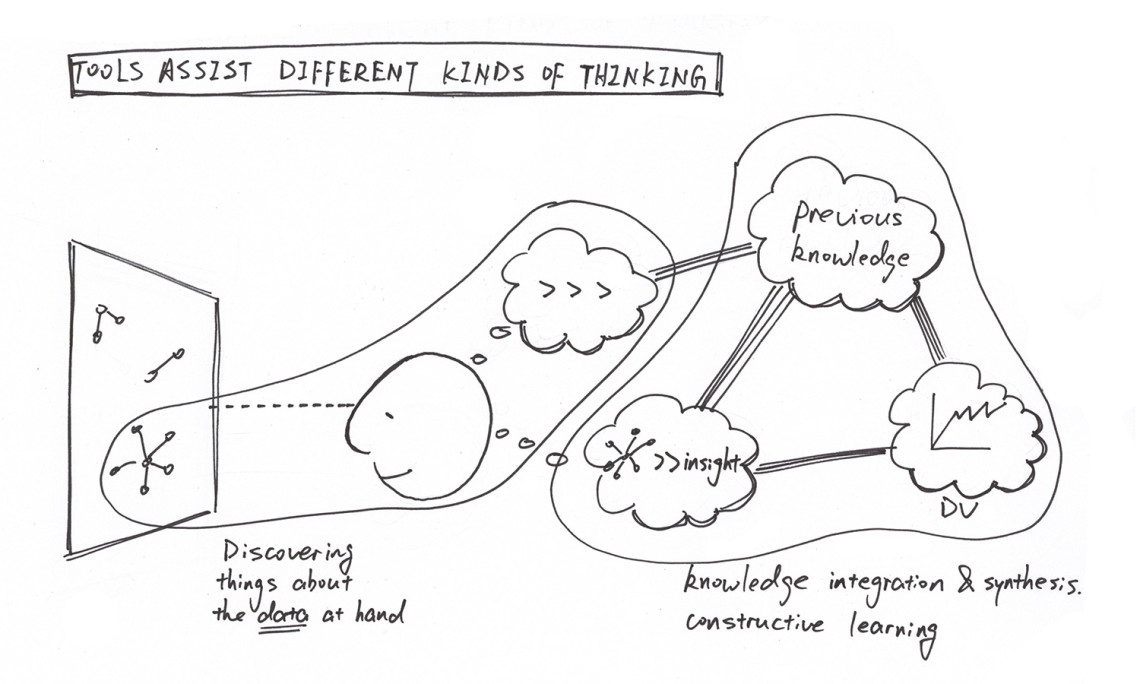 TOOLS ASSIST DIFFERENT KINDS OF THINKING
previous
knowledge
> > >
>>insight
DV
Discovering
things about
the data at hand
knowledge integration & synthesis.
constructive learning